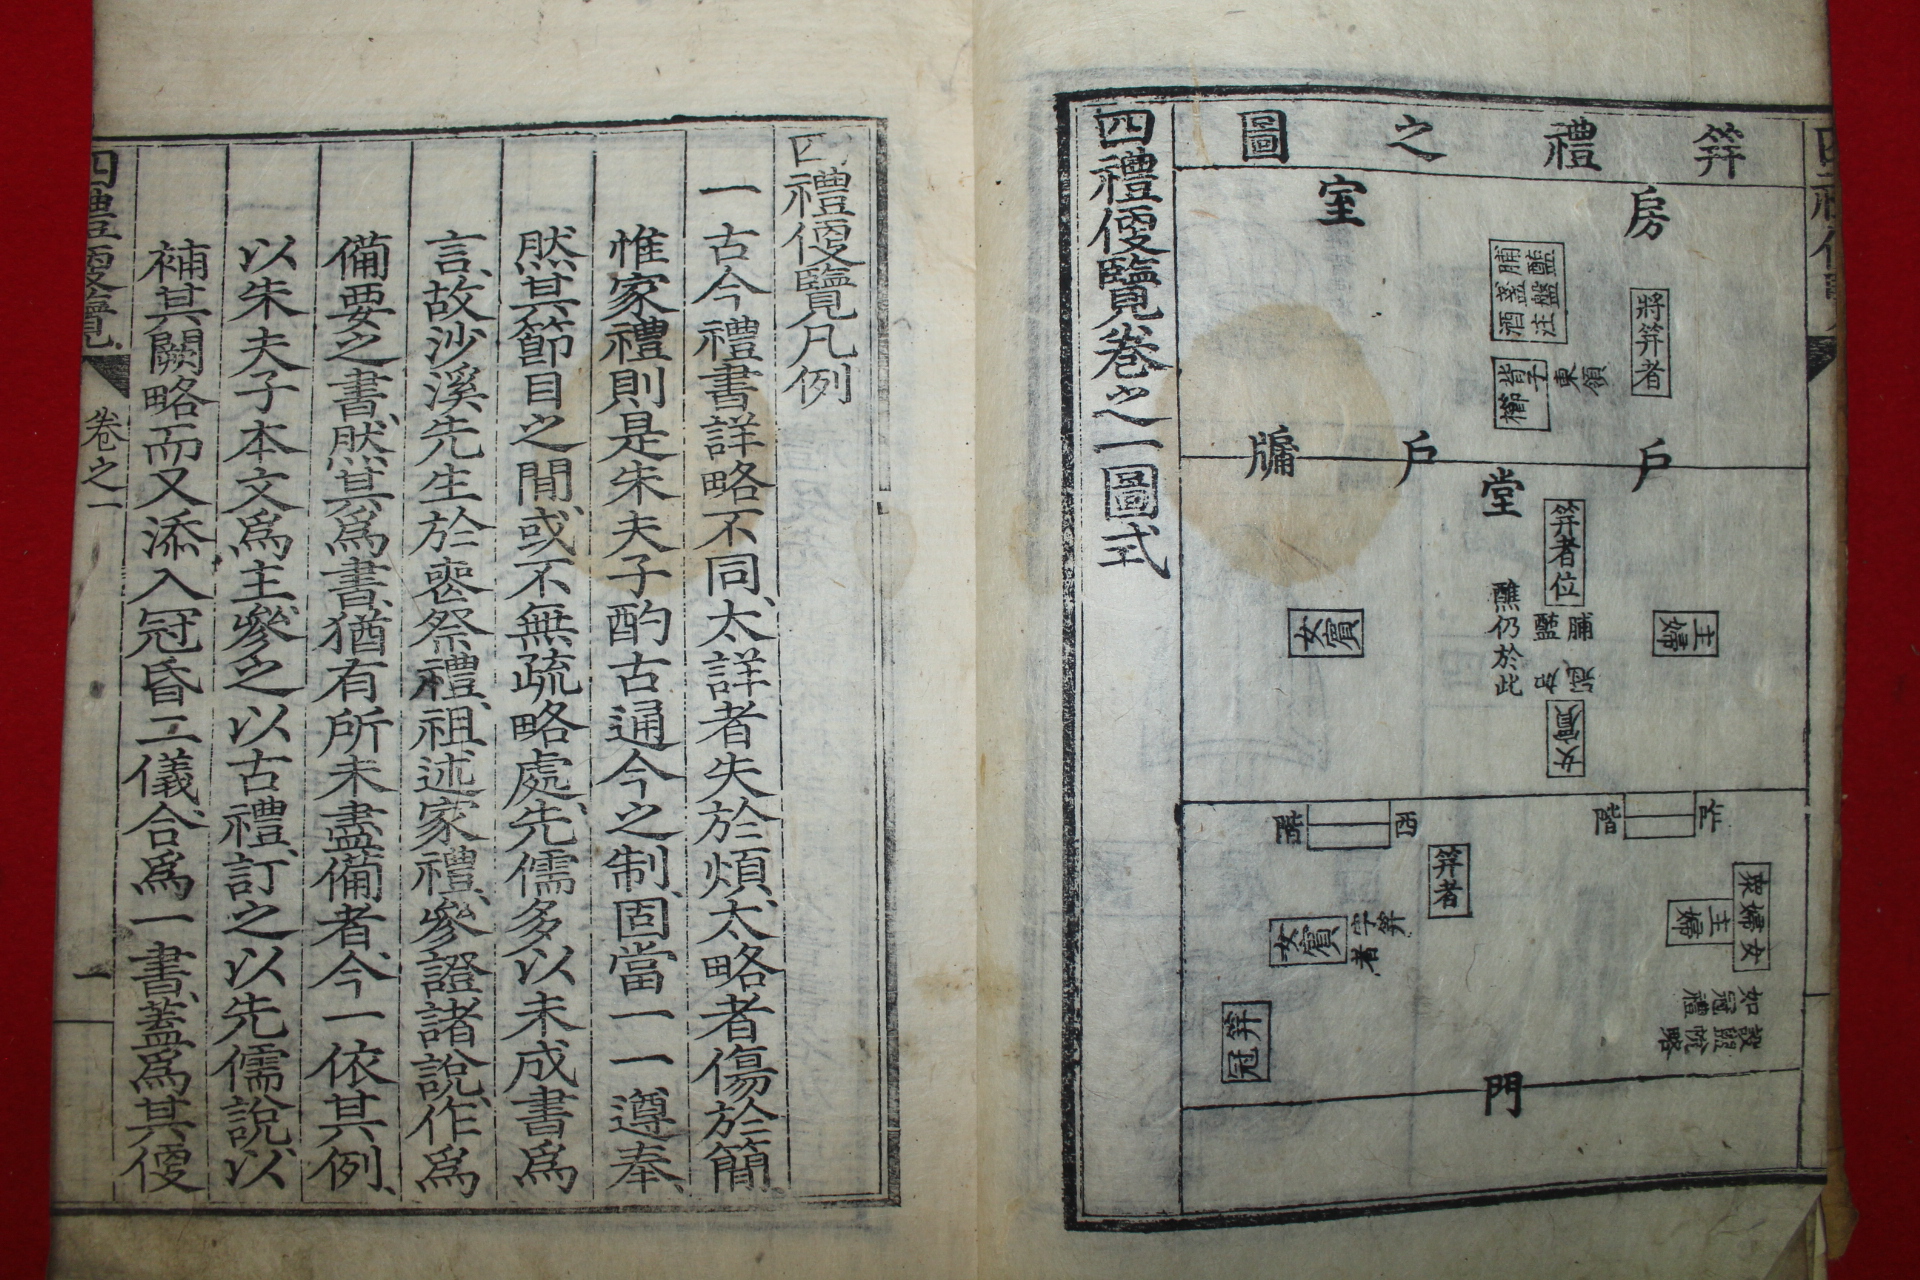 笄禮之圖
房
室
將笄者
醢盤注
脯盞酒
領
東
背子
櫛
戶
戶
牖
堂
笄者位
醮仍於此
脯
醢
冠
主婦
女賓
女賓
階
西階
笄者
字笄者
女賓
衆婦女
主婦
如冠禮
設盥帨略
冠笄
門
四禮便覽卷之一圖式
四禮便覽凡例
一古今禮書詳略不同太詳者失於煩太略者傷於簡
惟家禮則是朱夫子酌古通今之制固當一一遵奉
然其節目之間或不無疏略處先儒多以未成書爲
言故沙溪先生於喪祭禮祖述家禮參證諸說作爲
備要之書然其爲書猶有所未盡備者今一依其例
以朱夫子本文爲主參之以古禮訂之以先儒說以
補其闕略而又添入冠昏二儀合爲一書蓋爲其便
四禮便覽
卷之一
一